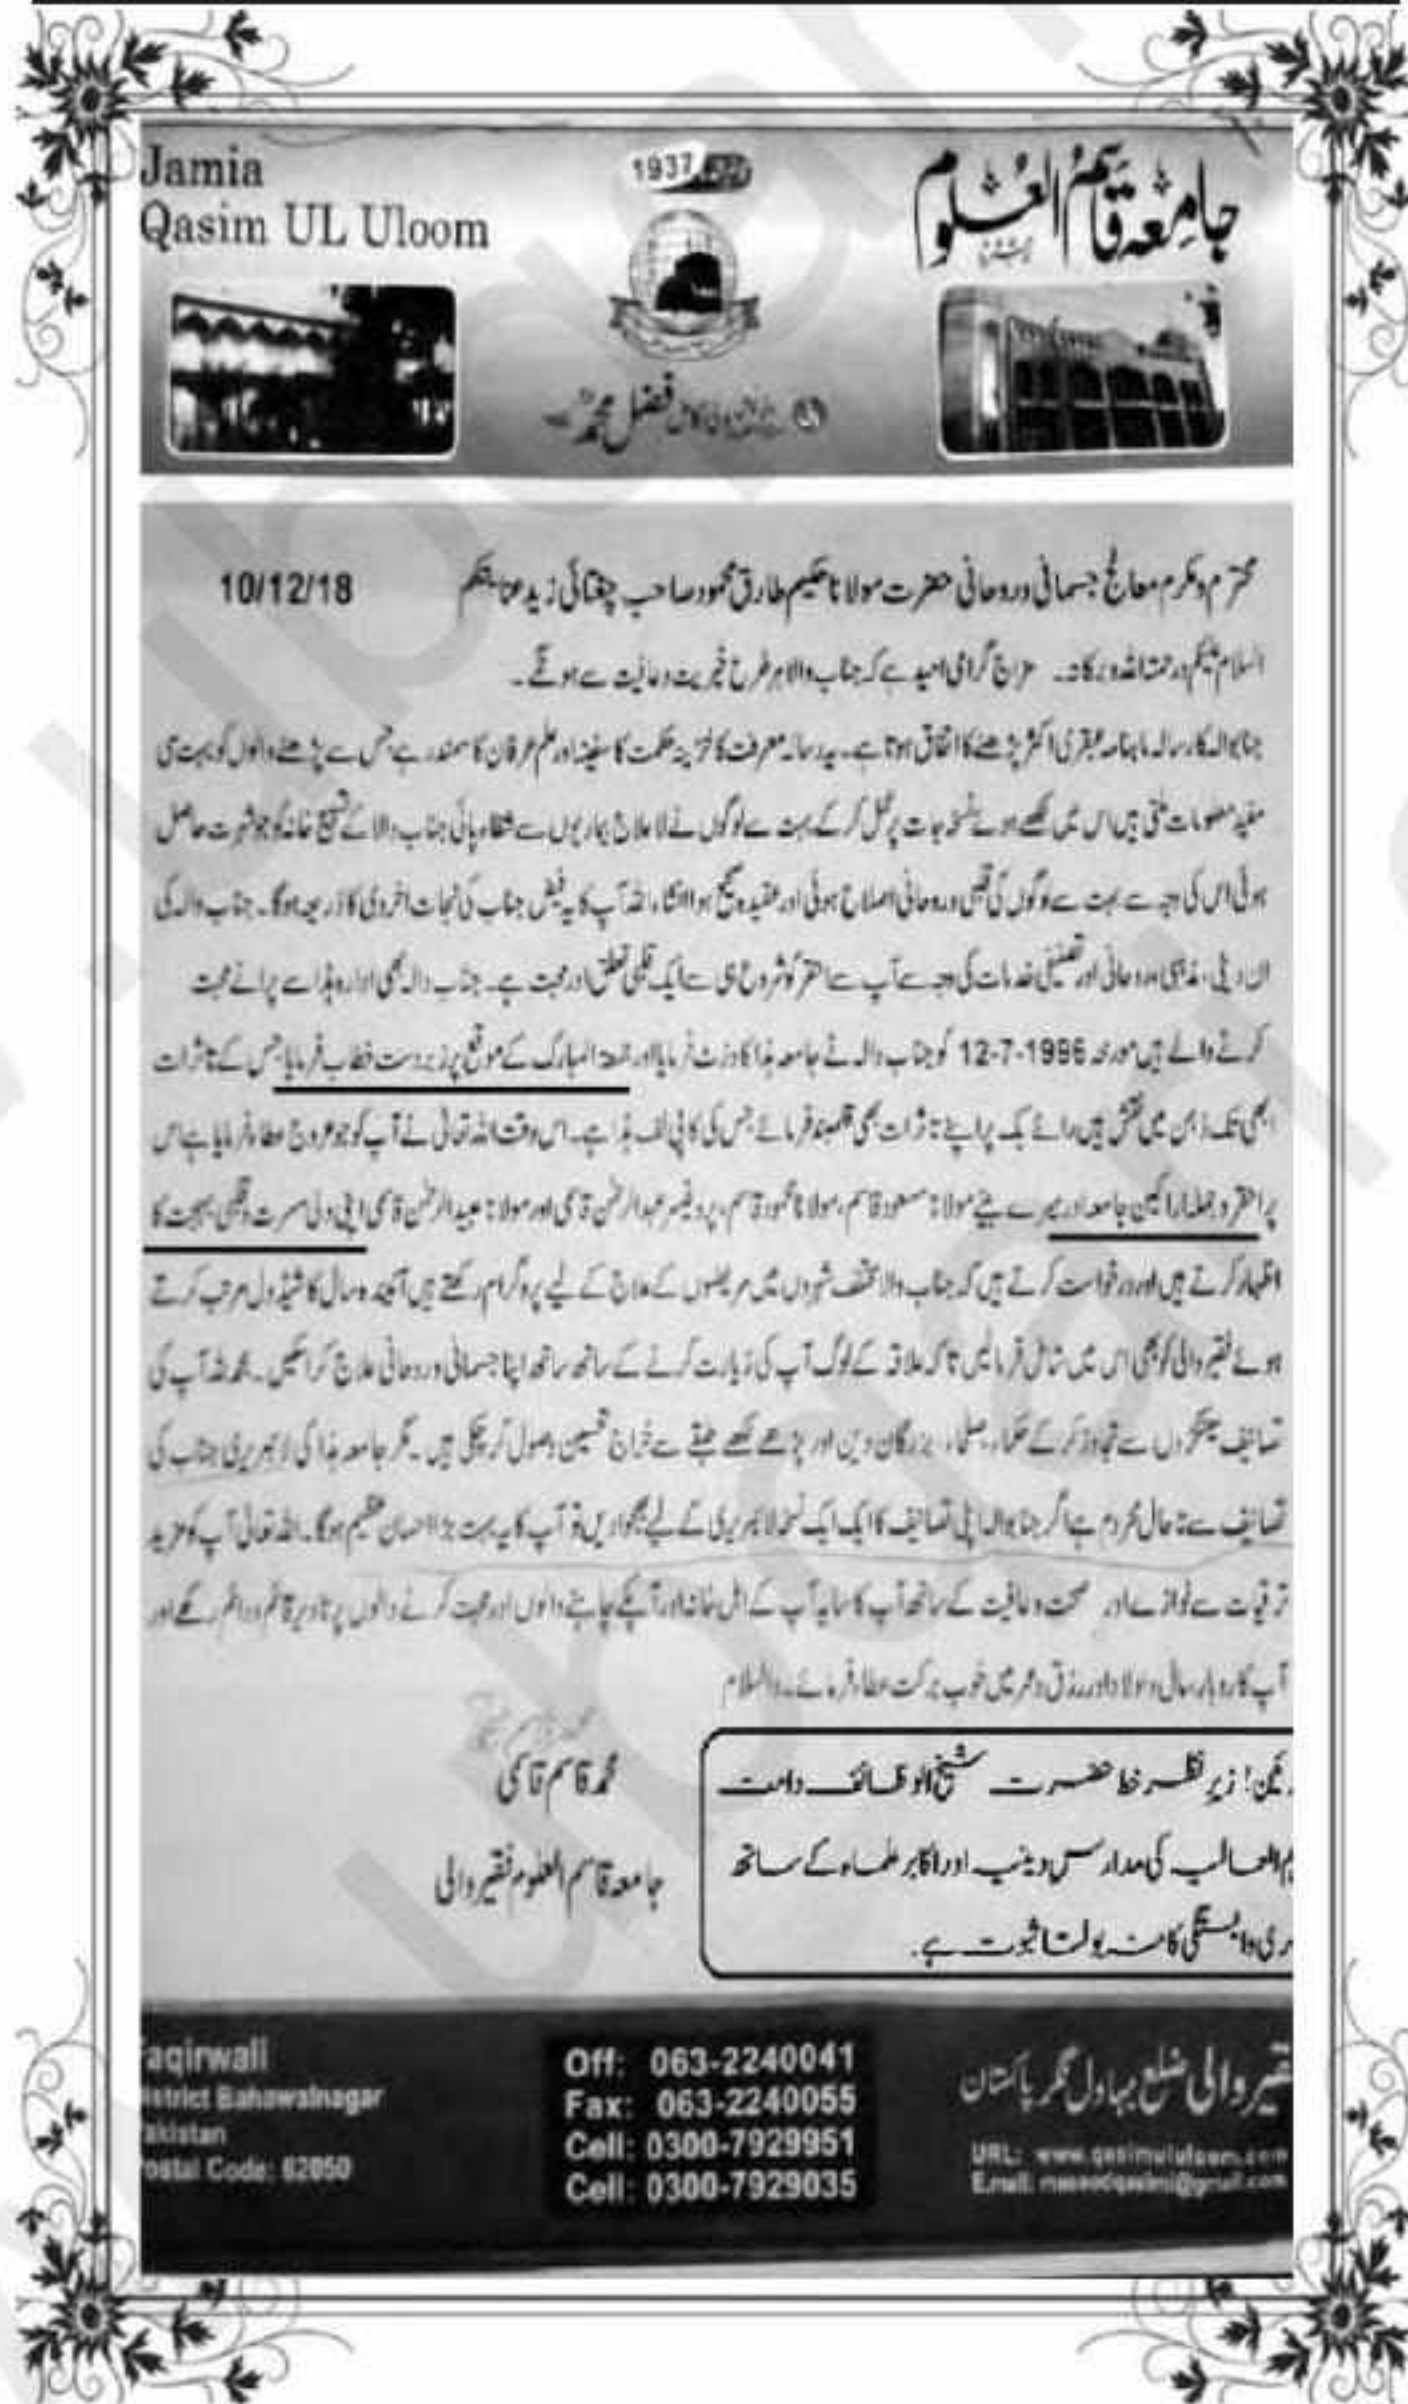 Jamia
Qasim UL Uloom
1937
جامعہ قاسم العلوم
فضل محمدؒ
محترم و مکرم معالج جسمانی و روحانی حضرت مولانا حکیم طارق محمود صاحب چغتائی زید عنایتکم
10/12/18
السلام علیکم ورحمتہ اللہ وبرکاتہ۔ مزاج گرامی امید ہے کہ جناب والا ہر طرح خیریت وعافیت سے ہونگے۔
جناب والا کا رسالہ ماہنامہ عبقری اکثر پڑھنے کا اتفاق ہوتا ہے۔ یہ رسالہ معرفت کا خزینہ حکمت کا سفینہ اور علم عرفان کا سمندر ہے جس سے پڑھنے والوں کو بہت سی
مفید معلومات ملتی ہیں اس میں لکھے ہوئے نسخہ جات پر عمل کر کے بہت سے لوگوں نے لاعلاج بیماریوں سے شفاء پائی جناب والا کے تسبیح خانہ کو جو شہرت حاصل
ہوئی اس کی وجہ سے بہت سے لوگوں کی قلبی و روحانی اصلاح ہوئی اور عقیدہ صحیح ہوا انشاء اللہ آپ کا یہ فیض جناب کی نجات اخروی کا ذریعہ ہوگا۔ جناب والہ کی
ان دینی، مذہبی، روحانی اور تصنیفی خدمات کی وجہ سے آپ سے احقر کو شروع ہی سے ایک قلبی تعلق اور محبت ہے۔ جناب والہ بھی ادارہ ہذا سے پرانے محبت
کرنے والے ہیں مورخہ 12-7-1996 کو جناب والہ نے جامعہ ہذا کا وزٹ فرمایا اور جمعۃ المبارک کے موقع پر زبردست خطاب فرمایا جس کے تاثرات
ابھی تک ذہن میں نقش ہیں رائے بک پر اپنے تاثرات بھی قلمبند فرمائے جس کی کاپی لف ہذا ہے۔ اس وقت اللہ تعالیٰ نے آپ کو جو عروج عطاء فرمایا ہے اس
پر احقر و جملہ اراکین جامعہ اور میرے بیٹے مولانا مسعود قاسم، مولانا محمود قاسم، پروفیسر عبدالرحمن قاسمی اور مولانا عبید الرحمن قاسمی اپنی دلی مسرت و قلبی بہجت کا
اظہار کرتے ہیں اور درخواست کرتے ہیں کہ جناب والا مختلف شہروں میں مریضوں کے علاج کے لیے پروگرام رکھتے ہیں آئیندہ سال کا شیڈول مرتب کرتے
ہوئے فقیروالی کو بھی اس میں شامل فرمالیں تاکہ علاقہ کے لوگ آپ کی زیارت کرنے کے ساتھ ساتھ اپنا جسمانی و روحانی علاج کراسکیں۔ بحمد للہ آپ کی
تصانیف سینکڑوں سے تجاوز کر کے حکماء، صلحاء، بزرگان دین اور پڑھے لکھے طبقے سے خراج تحسین وصول کرچکی ہیں۔ مگر جامعہ ہذا کی لائبریری جناب کی
تصانیف سے تاحال محروم ہے اگر جناب والہ اپنی تصانیف کا ایک ایک نسخہ لائبریری کے لیے بھجوادیں تو آپ کا یہ بہت بڑا احسان عظیم ہوگا۔ اللہ تعالیٰ آپ کو مزید
ترقیات سے نوازے اور صحت و عافیت کے ساتھ آپ کا سایہ آپ کے اہل خانہ اور آپکے چاہنے والوں اور محبت کرنے والوں پر تادیر قائم و دائم رکھے اور
آپ کا روبار، مال و اولاد اور رزق و عمر میں خوب برکت عطاء فرمائے۔ والسلام
محمد قاسم قاسمی
جامعہ قاسم العلوم فقیروالی
ئین! زیر نظر خط حضرت شیخ الوظائف دامت
م العالیہ کی مدارس دینیہ اور اکابر علماء کے ساتھ
ری وابستگی کا منہ بولتا ثبوت ہے۔
aqirwali
istrict Bahawalnagar
akistan
ostal Code: 62050
Off: 063-2240041
Fax: 063-2240055
Cell: 0300-7929951
Cell: 0300-7929035
فقیر والی ضلع بہاولنگر پاکستان
URL: www.qasimululoom.com
Email: masoodqasimi@gmail.com